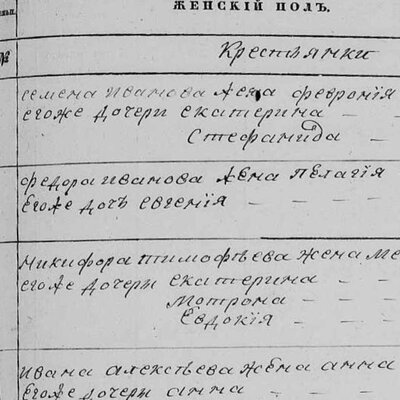 ЖЕНСКІЙ ПОЛЪ.
№
Крестьянки
Семена Иванова жена Февронія
Егоже дочери Екатерина — —
Стефанида — —
Федора Иванова жена Пелагія
Егоже дочь Евгенія — — — —
Никифора Тимофѣева жена
Егоже дочери Екатерина — — —
Мотрона — — —
Евдокія — — —
Ивана Алексѣева жена Анна
Егоже дочери Анна — — —